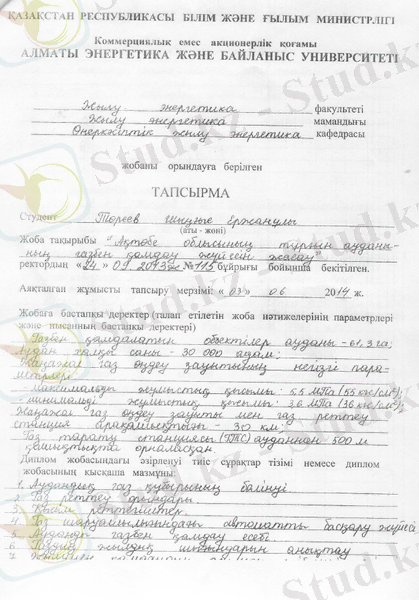 ҚАЗАҚСТАН РЕСПУБЛИКАСЫ БІЛІМ ЖӘНЕ ҒЫЛЫМ МИНИСТРЛІГІ
Коммерциялық емес акционерлік қоғамы
АЛМАТЫ ЭНЕРГЕТИКА ЖӘНЕ БАЙЛАНЫС УНИВЕРСИТЕТІ
Жылу энергетика факультеті
Жылу энергетика мамандығы
Өнеркәсіптік жылу энергетика кафедрасы
жобаны орындауға берілген
ТАПСЫРМА
Студент Тореев Ержанұлы
(аты - жөні)
Жоба тақырыбы "Ақтөбе облысының тұрғын ауданы-
ның газбен қамдау жүйесін жасау"
ректордың «24» 09 2013ж №115 бұйрығы бойынша бекітілген.
Аяқталған жұмысты тапсыру мерзімі: «03» 06 2014 ж.
Жобаға бастапқы деректер (талап етілетін жоба нәтижелерінің параметрлері
және нысанның бастапқы деректері)
Газбен қамдалатын объектілер ауданы - 61,3 га;
Аудан халқы саны - 30 000 адам;
Жаңажол газ өңдеу зауытының негізгі пара-
метрлері:
- максималды жұмыстық қысымы: 5,5 МПа (55 кгс/см²);
- минималды жұмыстық қысымы: 3,6 МПа (36 кгс/см²);
Жаңажол газ өңдеу зауыты мен газ реттеу
станция арақашықтығы - 30 км;
Газ тарату станциясы (ГТС) ауданнан 500 м
қашықтықта орналасқан.
Диплом жобасындағы әзірленуі тиіс сұрақтар тізімі немесе диплом
жобасының қысқаша мазмұны:
1. Аудандық газ құбырының бөлінуі
2. Газ реттеу орындары
3. Қысым реттегіштер
4 Газ шаруашылығындағы автоматты басқару жүйесі
5 Ауданды газбен қамдау есебі
6 Газдың жылдық шығындарын анықтау
7.
Stud.kz - Stud.kz